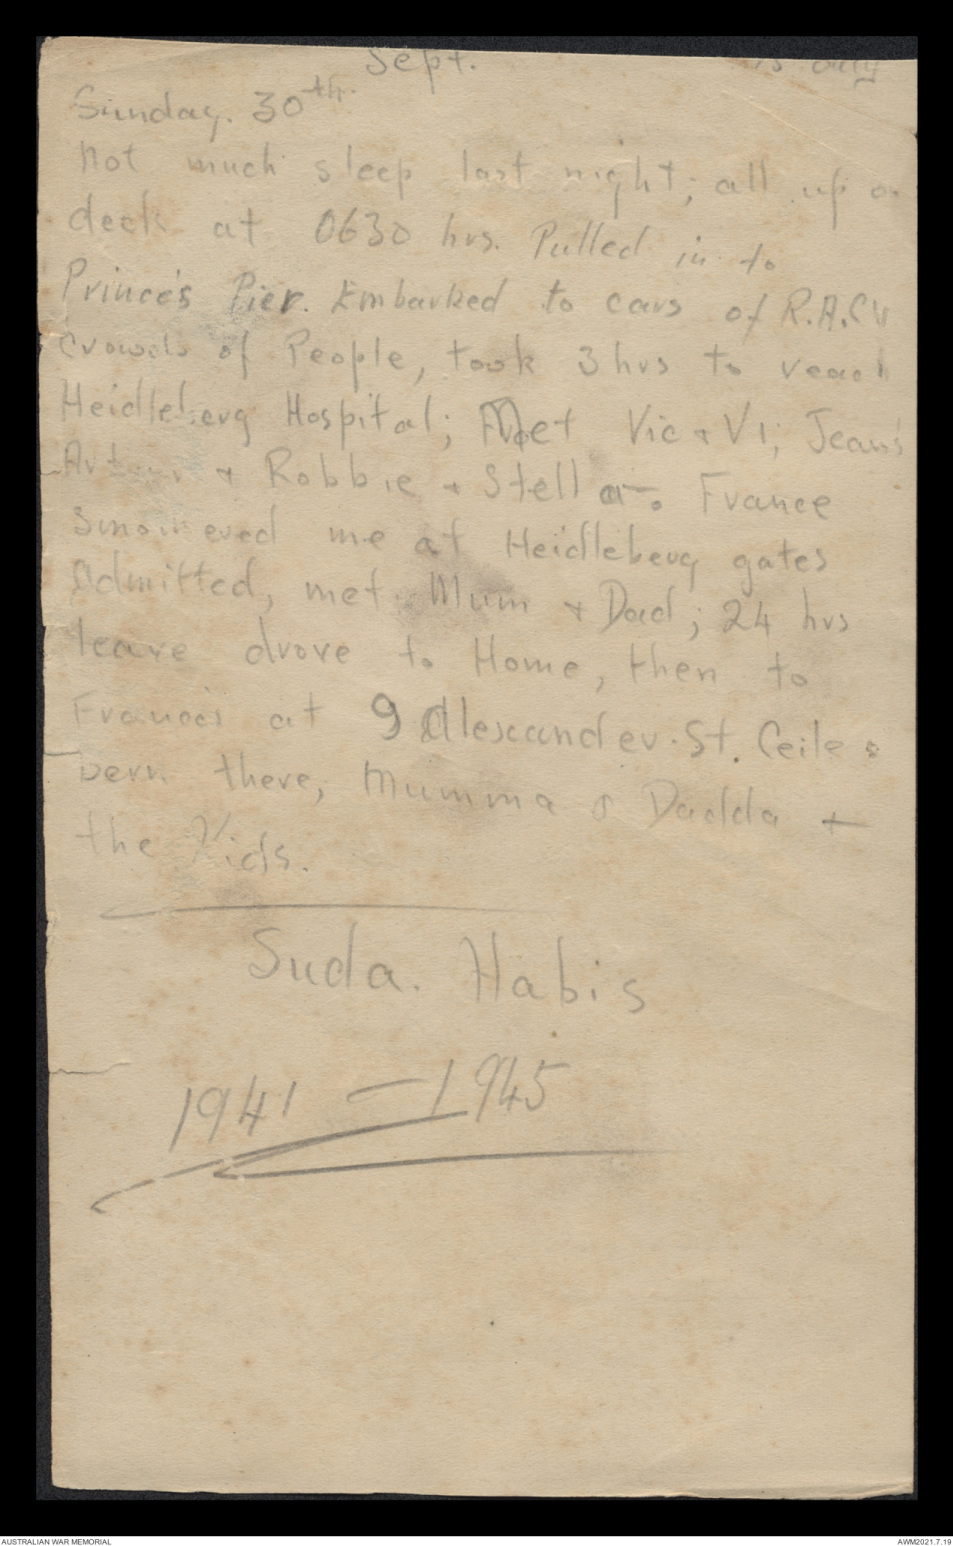 Sept.
Sunday. 30th.
Not much sleep last night; all up on
deck at 0630 hrs. Pulled in to
Prince's Pier. Embarked to cars of R.A.C.V
Crowds of People, took 3 hrs to reach
Heidleberg Hospital; Met Vic & Vi; Jean's
& Robbie & Stella. France
me at Heidleberg gates
Admitted, met Mum & Dad; 24 hrs
leave drove to Home, then to
Frances at 9 Alexander. St. Ceile &
Vern there, Mumma & Dadda +
the Kids.
Suda. Habis
1941 – 1945
AUSTRALIAN WAR MEMORIAL
AWM2021.7.19